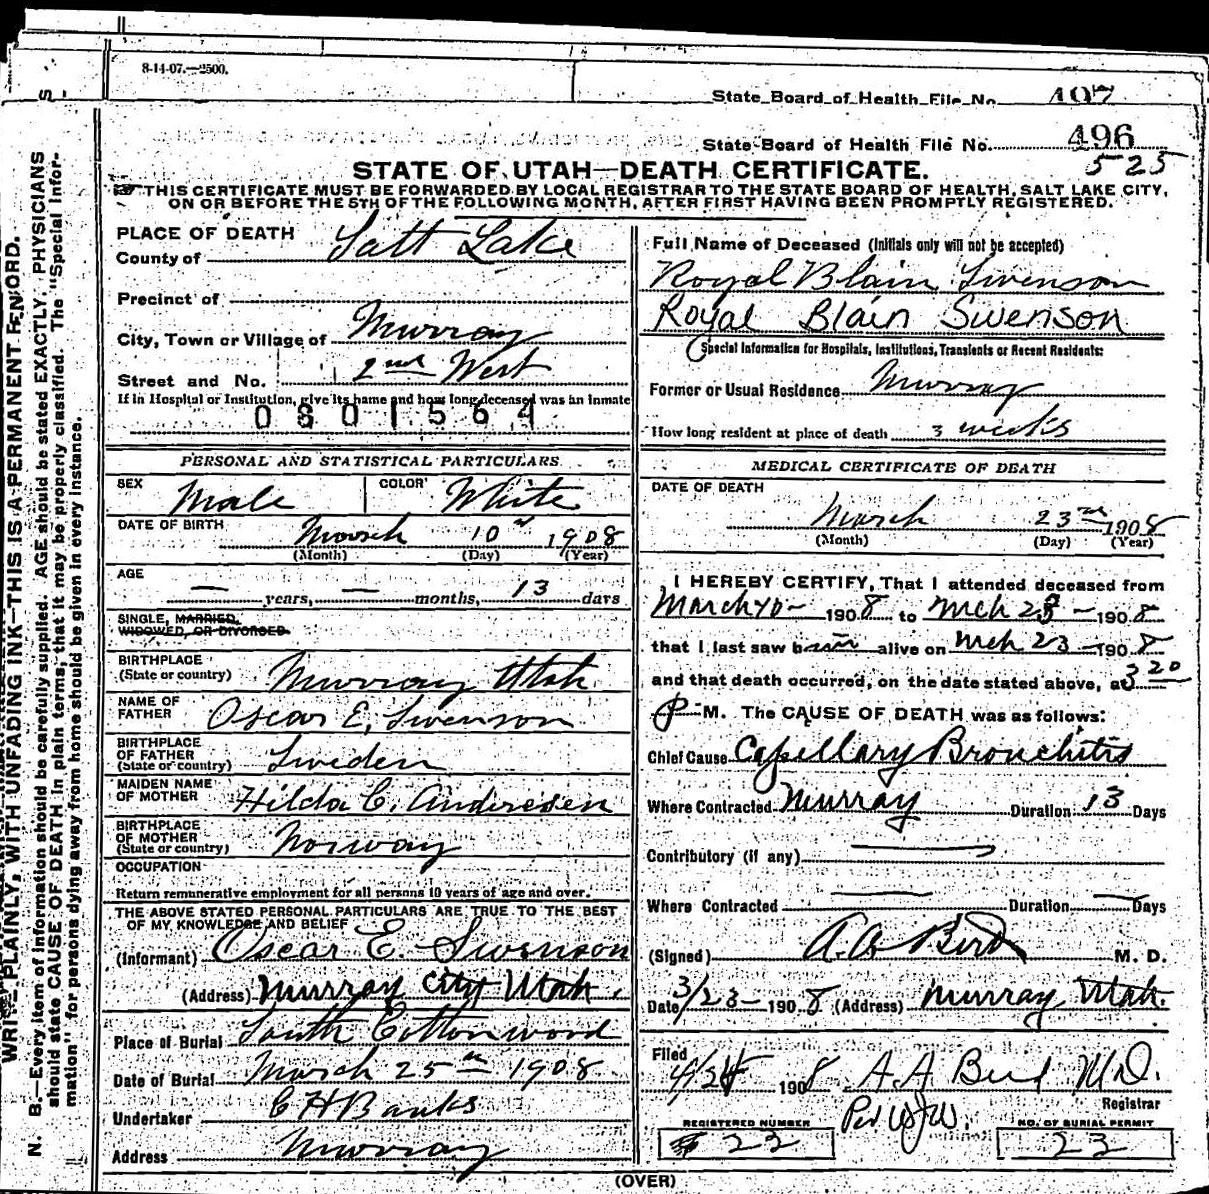 8-14-07.—2500.
State Board of Health File No. 497
State Board of Health File No. 496
525
STATE OF UTAH—DEATH CERTIFICATE.
THIS CERTIFICATE MUST BE FORWARDED BY LOCAL REGISTRAR TO THE STATE BOARD OF HEALTH, SALT LAKE CITY,
ON OR BEFORE THE 5TH OF THE FOLLOWING MONTH, AFTER FIRST HAVING BEEN PROMPTLY REGISTERED.
PLACE OF DEATH
County of Salt Lake
Precinct of
City, Town or Village of Murray
Street and No. 2nd West
If in Hospital or Institution, give its name and how long deceased was an inmate
0801564
PERSONAL AND STATISTICAL PARTICULARS
SEX Male COLOR White
DATE OF BIRTH March 10 1908
(Month) (Day) (Year)
AGE — years, — months, 13 days
SINGLE, MARRIED,
WIDOWED, OR DIVORCED.
BIRTHPLACE
(State or country) Murray Utah
NAME OF
FATHER Oscar E. Swenson
BIRTHPLACE
OF FATHER
(State or country) Sweden
MAIDEN NAME
OF MOTHER Hilda C. Andresen
BIRTHPLACE
OF MOTHER
(State or country) Norway
OCCUPATION
Return remunerative employment for all persons 10 years of age and over.
THE ABOVE STATED PERSONAL PARTICULARS ARE TRUE TO THE BEST
OF MY KNOWLEDGE AND BELIEF
(Informant) Oscar E. Swenson
(Address) Murray City Utah.
Place of Burial South Cottonwood
Date of Burial March 25th 1908
Undertaker C H Banks
Address Murray
Full Name of Deceased (Initials only will not be accepted)
Royal Blain Swenson
Royal Blain Swenson
Special Information for Hospitals, Institutions, Transients or Recent Residents:
Former or Usual Residence Murray
How long resident at place of death 3 weeks
MEDICAL CERTIFICATE OF DEATH
DATE OF DEATH
March 23rd 1908
(Month) (Day) (Year)
I HEREBY CERTIFY, That I attended deceased from
March 10 - 1908 to Mch 23 - 1908
that I last saw him alive on Mch 23 - 1908
and that death occurred, on the date stated above, at 3 20
P M. The CAUSE OF DEATH was as follows:
Chief Cause Capillary Bronchitis
Where Contracted Murray Duration 13 Days
Contributory (if any) —
Where Contracted — Duration — Days
(Signed) A. A. Bird M. D.
Date 3/23 - 1908 (Address) Murray Utah.
Filed 4/24 1908 A A Bird M.D.
Registrar
Per WJW.
REGISTERED NUMBER
22
NO. OF BURIAL PERMIT
22
(OVER)
WRITE PLAINLY, WITH UNFADING INK—THIS IS A PERMANENT RECORD.
N. B.—Every item of information should be carefully supplied. AGE should be stated EXACTLY. PHYSICIANS
should state CAUSE OF DEATH in plain terms, that it may be properly classified. The "Special Infor-
mation" for persons dying away from home should be given in every instance.